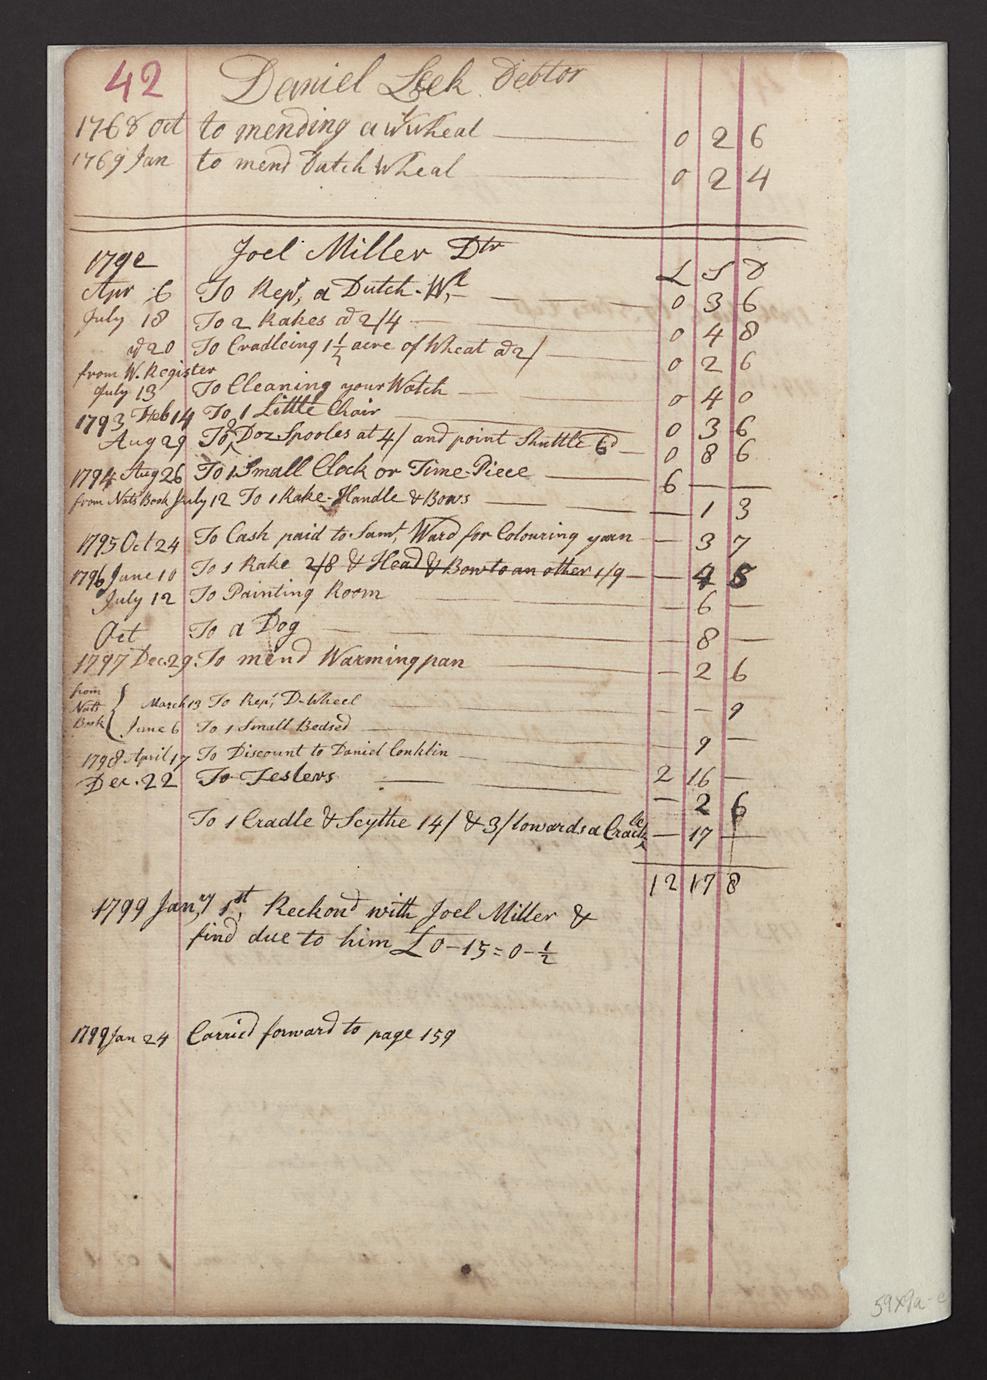 42 Daniel Leek Debtor
1768 Oct to mending a w Wheal 0 2 6
1769 Jan to mend Dutch Wheal 0 2 4
1792 Joel Miller Dtr L S D
Apr 6 To Repr, a Dutch-Wl 0 3 6
July 18 To 2 Rakes at 2/4 0 4 8
d 20 To Cradleing 1 1/2 acre of Wheat at 2/ 0 2 6
from W. Register
July 13 To Cleaning your Watch 0 4 0
1793 Feb 14 To 1 Little Chair 0 3 6
Aug 29 To 2 Doz Spooles at 4/ and point Shuttle 6d 0 8 6
1794 Aug 26 To 1 Small Clock or Time-Piece 6
from Nats Book July 12 To 1 Rake-Handle & Bows 1 3
1795 Oct 24 To Cash paid to Saml. Ward for Colouring yarn 3 7
1796 June 10 To 1 Rake 2/8 & Head & Bow to an other 1/9 4 5
July 12 To Painting Room 6
Oct To a Dog 8
1797 Dec. 29. To mend Warmingpan 2 6
from Nats Book March 13 To Repr, D-Wheel 9
June 6 To 1 Small Bedsd 9
1798 April 17 To Discount to Daniel Conklin 2 16
Dec. 22 To Testers 2 6
To 1 Cradle & Scythe 14/ & 3/ towards a Cradle 17
12 17 8
1799 Jany, 1st, Reckond with Joel Miller &
find due to him £0-15=0-1/2
1799 Jan 24 Carried forward to page 159
59x9a-e